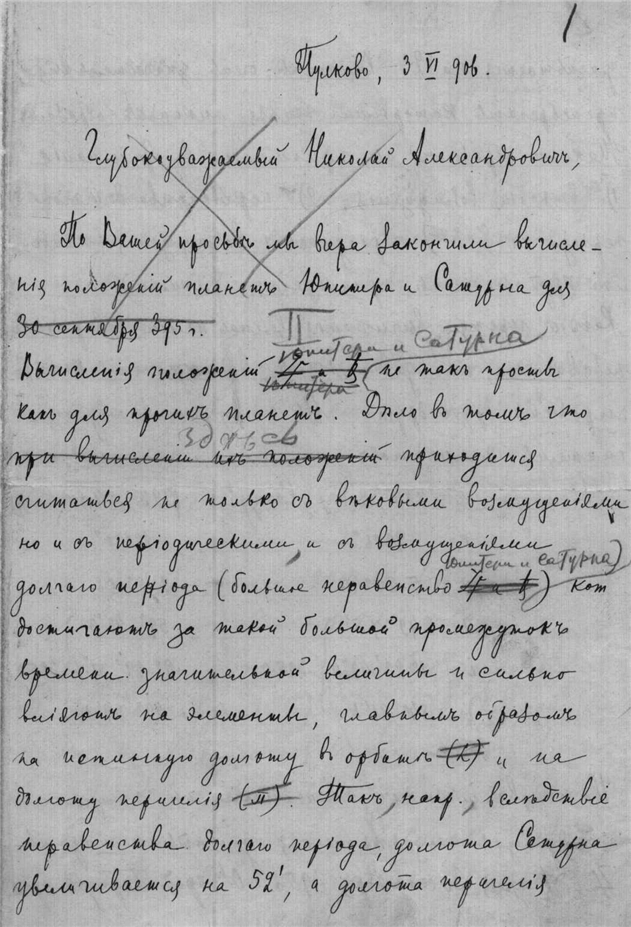 1
Пулково, 3 VI 906.
Глубокоуважаемый Николай Александровичъ,
По Вашей просьбѣ мы вчера закончили вычисле-
нія положеній планетъ Юпитера и Сатурна для
30 сентября 395 г.
II
Юпитера и Сатурна
Вычисленія положеній ♃ и ♄ не такъ просты
Юпитера
какъ для прочихъ планетъ. Дѣло въ томъ что
Здѣсь
при вычисленіи ихъ положеній приходится
считаться не только съ вѣковыми возмущеніями
но и съ періодическими, и съ возмущеніями
Юпитера и Сатурна)
долгаго періода (большое неравенство ♃ и ♄) кот
достигаютъ за такой большой промежутокъ
времени значительной величины и сильно
вліяютъ на элементы, главнымъ образомъ
на истинную долготу въ орбитѣ и на
долготу перигелія (π). Такъ, напр., вслѣдствіе
неравенства долгаго періода, долгота Сатурна
увеличивается на 52', а долгота перигелія